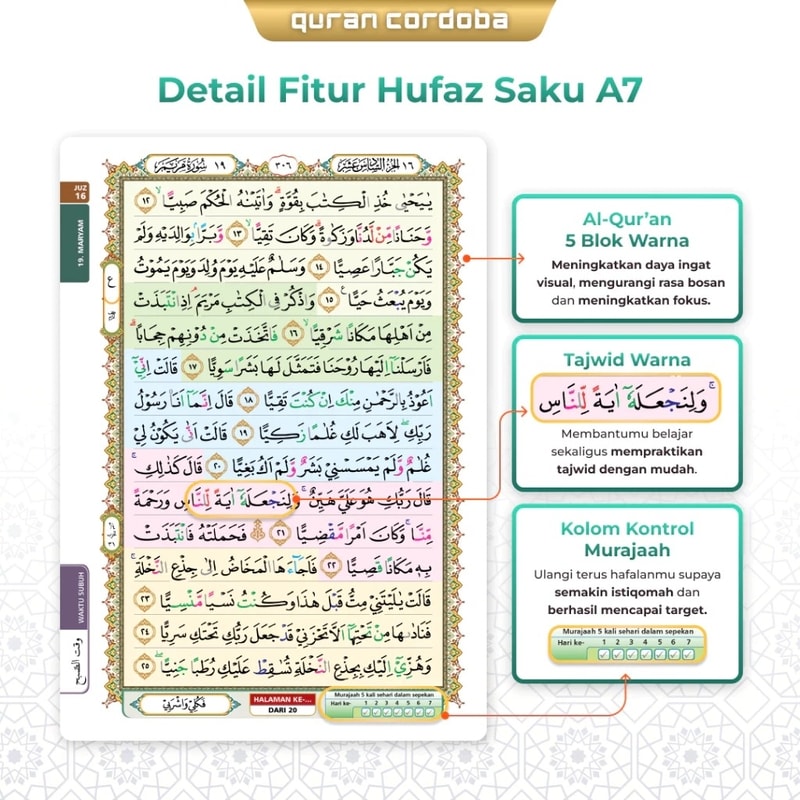 quran cordoba
Detail Fitur Hufaz Saku A7
١٩ سُوْرَةُ مَرْيَمَ
٣٠٦
١٦ الجُزْءُ السَّادِسَ عَشَرَ
JUZ
16
19. MARYAM
يٰيَحْيٰى خُذِ الْكِتٰبَ بِقُوَّةٍ ۗ وَاٰتَيْنٰهُ الْحُكْمَ صَبِيًّاۙ ١٢
وَّحَنَانًا مِّنْ لَّدُنَّا وَزَكٰوةً ۗ وَكَانَ تَقِيًّاۙ ١٣ وَّبَرًّاۢ بِوَالِدَيْهِ وَلَمْ
يَكُنْ جَبَّارًا عَصِيًّا ١٤ وَسَلٰمٌ عَلَيْهِ يَوْمَ وُلِدَ وَيَوْمَ يَمُوْتُ
وَيَوْمَ يُبْعَثُ حَيًّا ࣖ ١٥ وَاذْكُرْ فِى الْكِتٰبِ مَرْيَمَۘ اِذِ انْتَبَذَتْ
مِنْ اَهْلِهَا مَكَانًا شَرْقِيًّاۙ ١٦ فَاتَّخَذَتْ مِنْ دُوْنِهِمْ حِجَابًاۗ
فَاَرْسَلْنَآ اِلَيْهَا رُوْحَنَا فَتَمَثَّلَ لَهَا بَشَرًا سَوِيًّا ١٧ قَالَتْ اِنِّيْٓ
اَعُوْذُ بِالرَّحْمٰنِ مِنْكَ اِنْ كُنْتَ تَقِيًّا ١٨ قَالَ اِنَّمَآ اَنَا۠ رَسُوْلُ
رَبِّكِۖ لِاَهَبَ لَكِ غُلٰمًا زَكِيًّا ١٩ قَالَتْ اَنّٰى يَكُوْنُ لِيْ
غُلٰمٌ وَّلَمْ يَمْسَسْنِيْ بَشَرٌ وَّلَمْ اَكُ بَغِيًّا ٢٠ قَالَ كَذٰلِكِۚ
قَالَ رَبُّكِ هُوَ عَلَيَّ هَيِّنٌۚ وَلِنَجْعَلَهٗٓ اٰيَةً لِّلنَّاسِ وَرَحْمَةً
مِّنَّاۚ وَكَانَ اَمْرًا مَّقْضِيًّا ٢١ ۞ فَحَمَلَتْهُ فَانْتَبَذَتْ
بِهٖ مَكَانًا قَصِيًّا ٢٢ فَاَجَاۤءَهَا الْمَخَاضُ اِلٰى جِذْعِ النَّخْلَةِۚ
قَالَتْ يٰلَيْتَنِيْ مِتُّ قَبْلَ هٰذَا وَكُنْتُ نَسْيًا مَّنْسِيًّا ٢٣
فَنَادٰىهَا مِنْ تَحْتِهَآ اَلَّا تَحْزَنِيْ قَدْ جَعَلَ رَبُّكِ تَحْتَكِ سَرِيًّا ٢٤
وَهُزِّيْٓ اِلَيْكِ بِجِذْعِ النَّخْلَةِ تُسٰقِطْ عَلَيْكِ رُطَبًا جَنِيًّاۖ ٢٥
WAKTU SUBUH
وقت الصبح
فَكُلِيْ وَاشْرَبِيْ
HALAMAN KE-...
DARI 20
Murajaah 5 kali sehari dalam sepekan
Hari ke- 1 2 3 4 5 6 7
Al-Qur'an
5 Blok Warna
Meningkatkan daya ingat
visual, mengurangi rasa bosan
dan meningkatkan fokus.
Tajwid Warna
وَلِنَجْعَلَهٗٓ اٰيَةً لِّلنَّاسِ
Membantumu belajar
sekaligus mempraktikan
tajwid dengan mudah.
Kolom Kontrol
Murajaah
Ulangi terus hafalanmu supaya
semakin istiqomah dan
berhasil mencapai target.
Murajaah 5 kali sehari dalam sepekan
Hari ke- 1 2 3 4 5 6 7